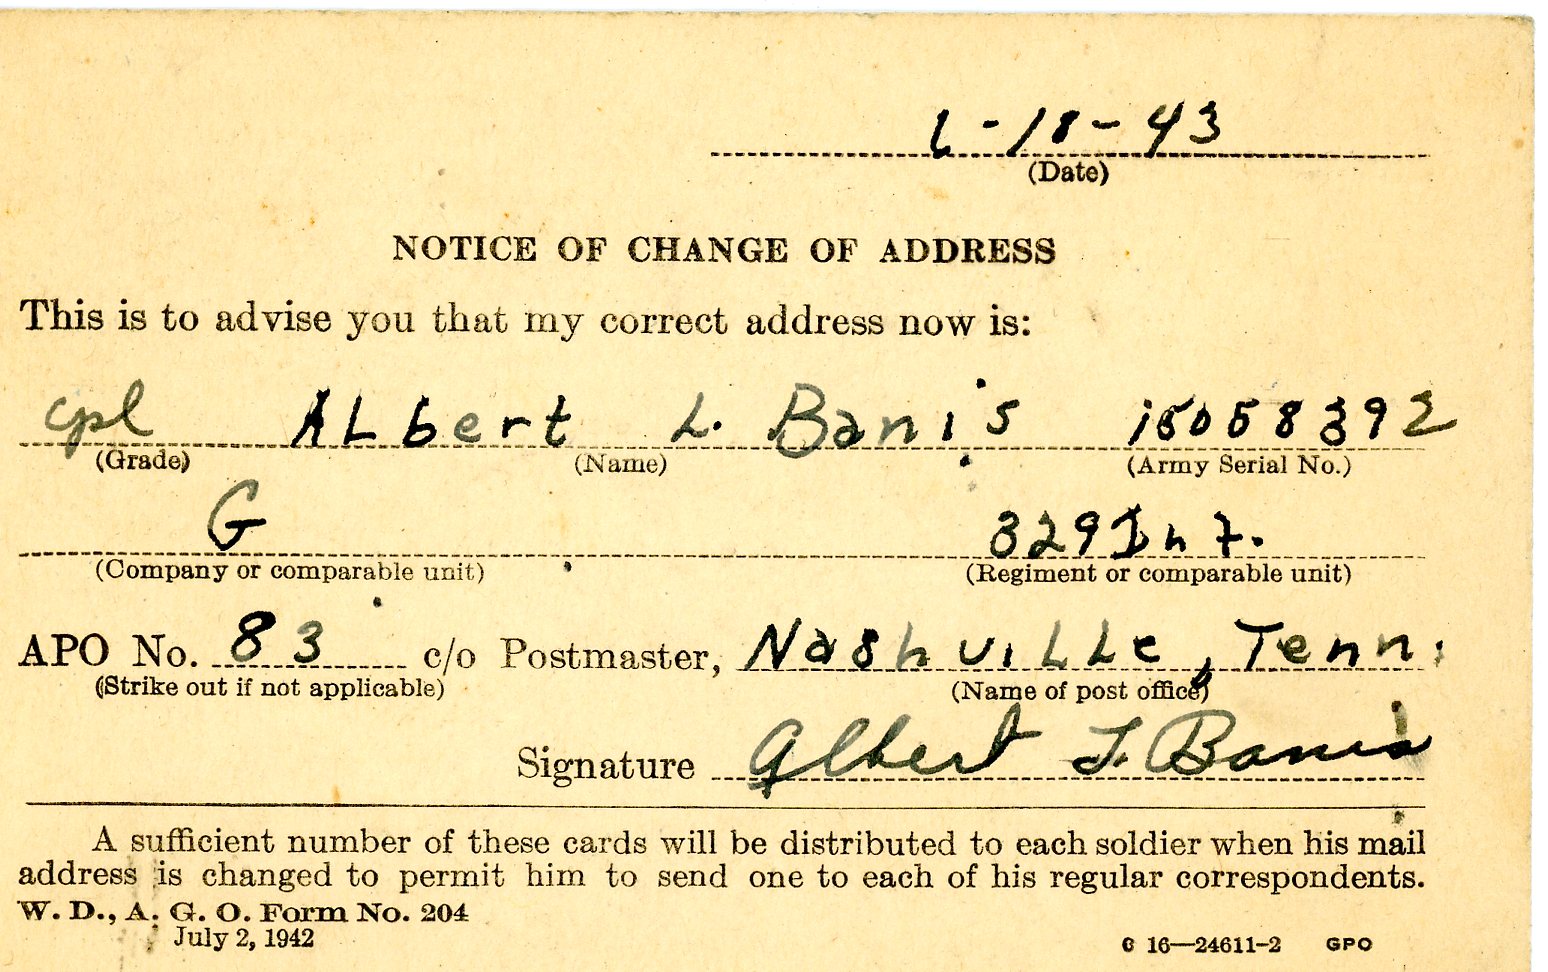 6-18-43
(Date)
NOTICE OF CHANGE OF ADDRESS
This is to advise you that my correct address now is:
Cpl ALbert L. Banis 15058392
(Grade) (Name) (Army Serial No.)
G 329 Inf.
(Company or comparable unit) (Regiment or comparable unit)
APO No. 83 c/o Postmaster, NashviLLe, Tenn.
(Strike out if not applicable) (Name of post office)
Signature Albert L. Banis
A sufficient number of these cards will be distributed to each soldier when his mail
address is changed to permit him to send one to each of his regular correspondents.
W. D., A. G. O. Form No. 204
July 2, 1942
16—24611-2 GPO